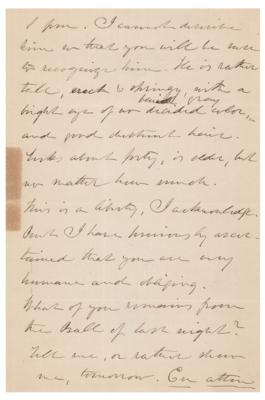 1 p.m. I cannot describe
him so that you will be sure
to recognize him. He is rather
tall, erect & springy, with a
beard, gray
bright eye of no decided color,
and good hair.
Looks about forty, is older, but
no matter how much.
This is a liberty, I acknowledge.
But I have previously ascer-
tained that you are very
humane and obliging.
What of you remains from
the Ball of last night?
Tell me, or rather show
me, tomorrow. En